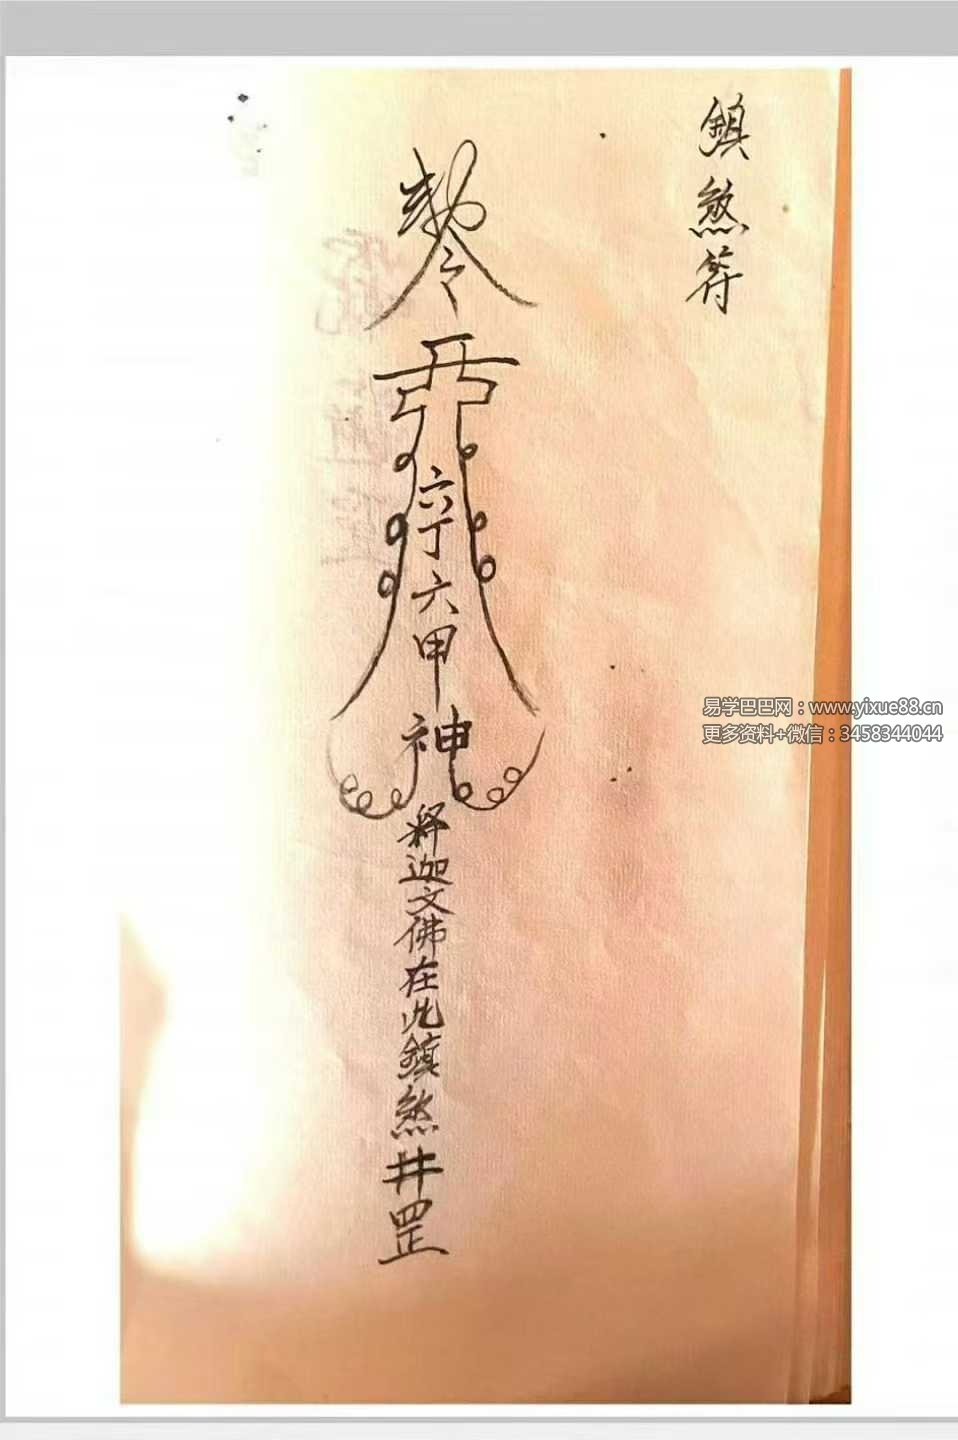 鎮煞符
敕令
六丁六甲神
释迦文佛在此鎮煞井罡
易学巴巴网：www.yixue88.cn
更多资料+微信：3458344044